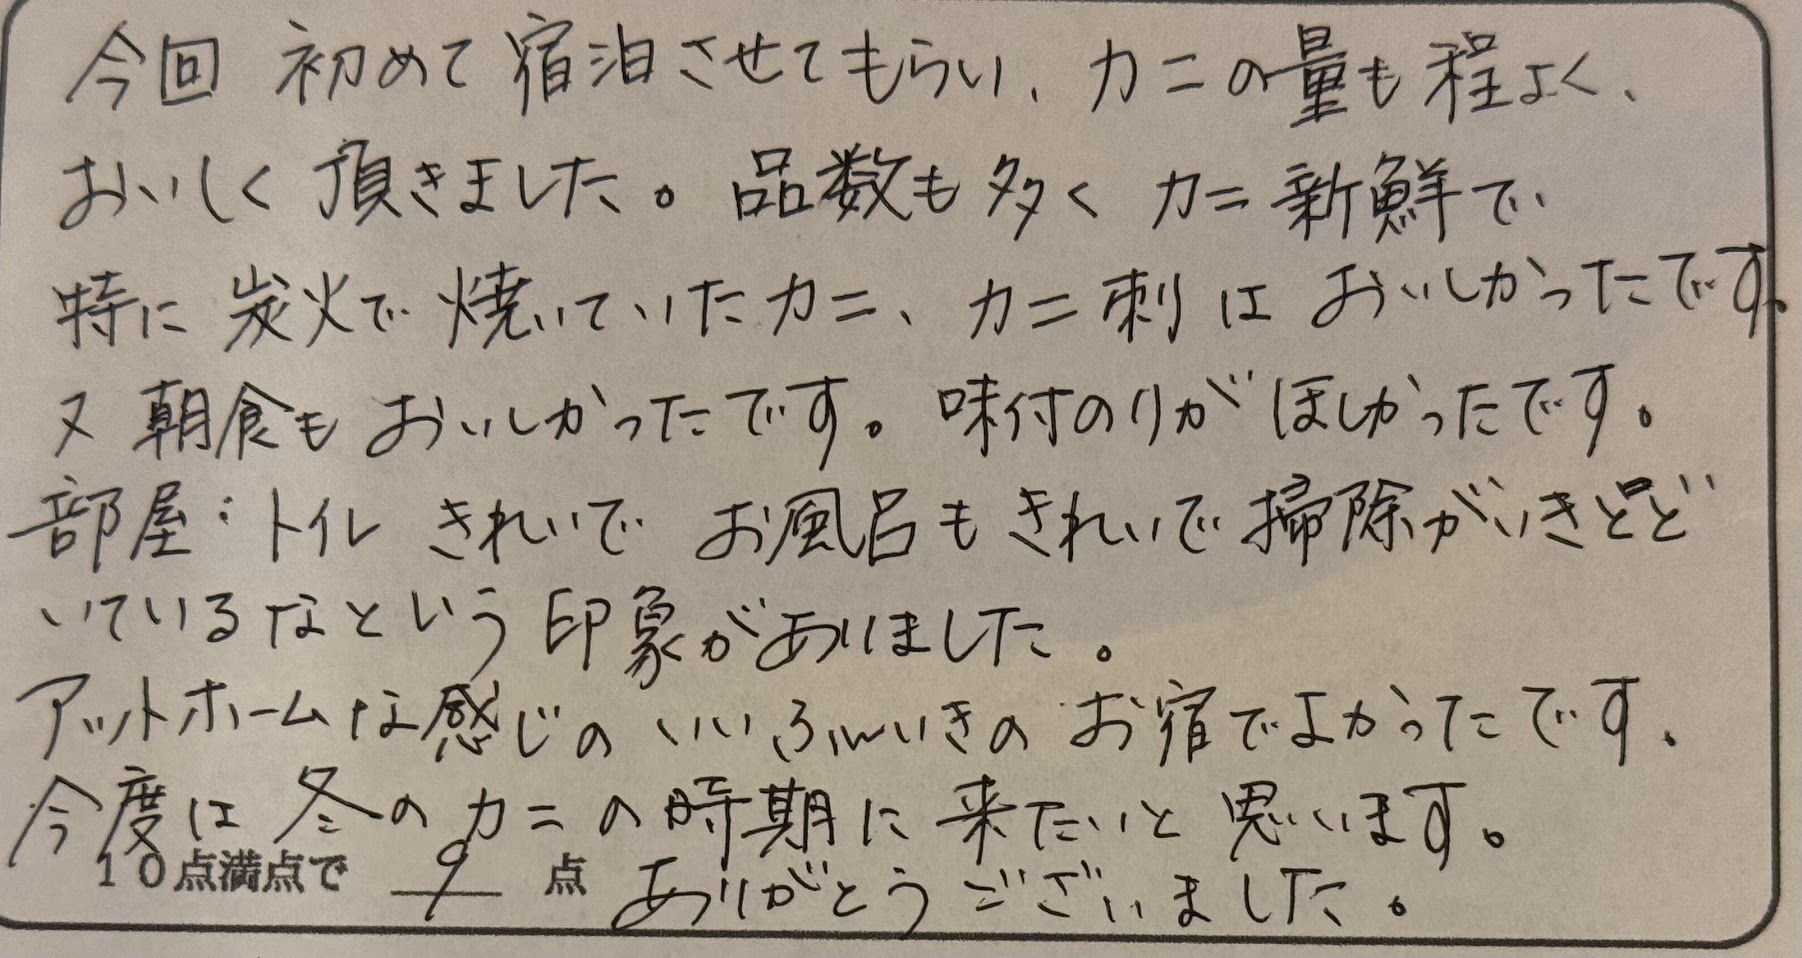 今回 初めて宿泊させてもらい、カニの量も程よく、
おいしく頂きました。品数も多くカニ新鮮で
特に炭火で焼いていたカニ、カニ刺はおいしかったです。
又朝食もおいしかったです。味付のりがほしかったです。
部屋:トイレ きれいで お風呂もきれいで掃除がいきとど
いているなという印象がありました。
アットホームな感じのいいふんいきのお宿でよかったです。
今度は冬のカニの時期に来たいと思います。
10点満点で 9 点 ありがとうございました。